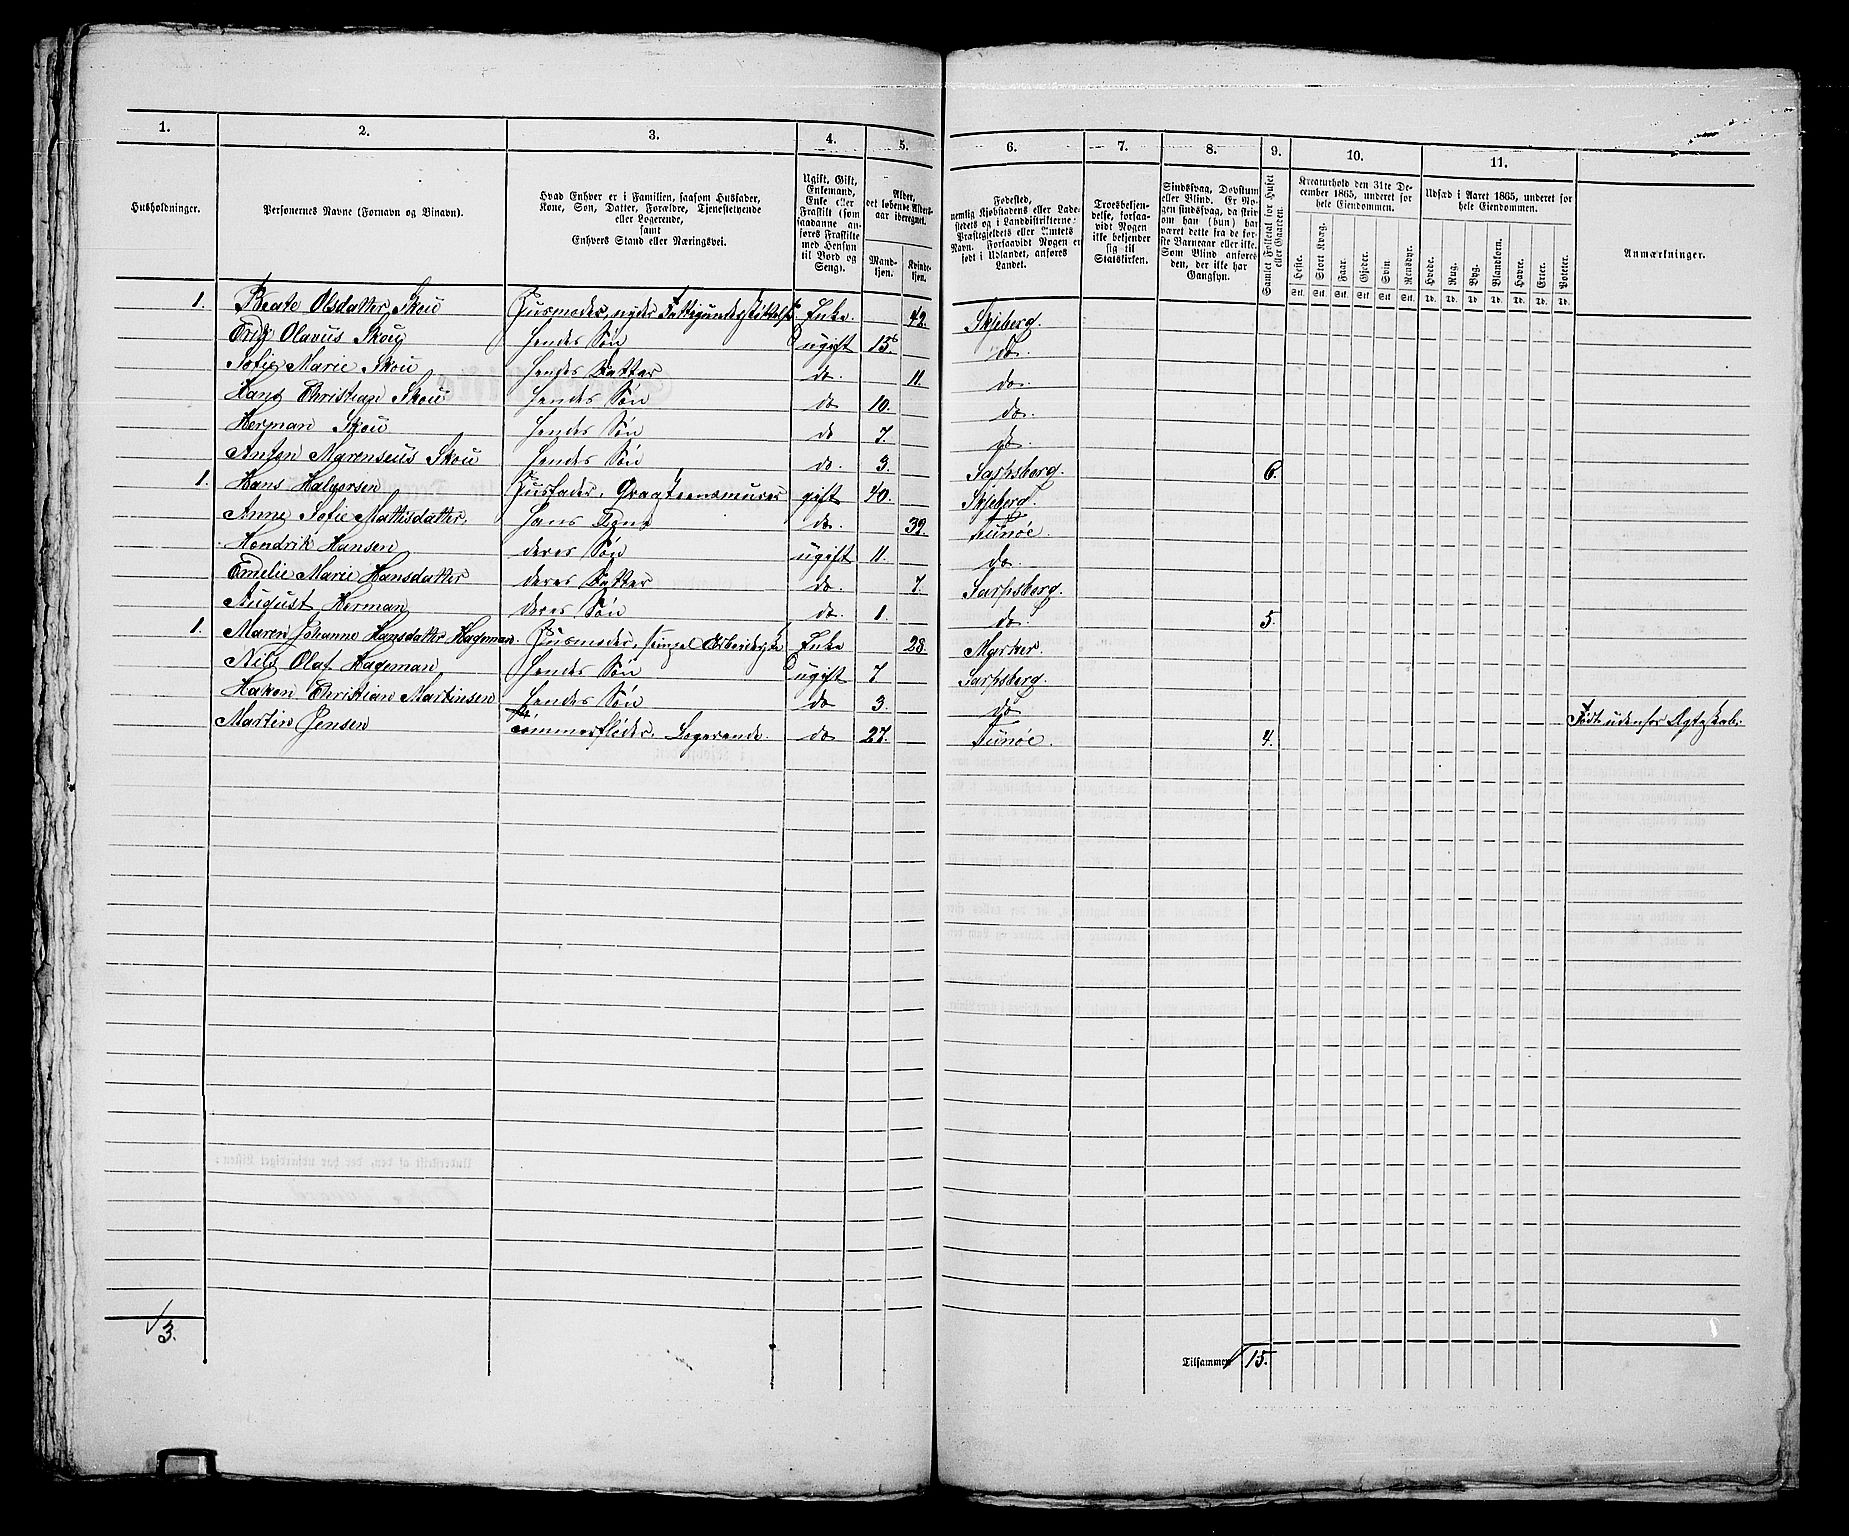 1. 2. 3. 4. 5. 6. 7. 8. 9. 10. 11.
Husholdninger.
Personernes Navne (Fornavn og Binavn).
Hvad Enhver er i Familien, saasom Husfader,
Kone, Søn, Datter, Forældre, Tjenestetyende
eller Logerende,
samt
Enhvers Stand eller Næringsvei.
Ugift, Gift,
Enkemand,
Enke eller
Fraskilt (som
saadanne anføres Fraskilte
med Hensyn
til Bord og
Seng).
Alder,
det løbende Aldersaar iberegnet.
Mandkjøn.
Kvindekjøn.
Fødested,
nemlig Kjøbstadens eller Ladestedets og i Landdistrikterne:
Præstegjeldets eller Amtets
Navn. Forsaavidt Nogen er
født i Udlandet, anføres
Landet.
Troesbekjendelse, forsaavidt Nogen
ikke bekjender
sig til
Statskirken.
Sindssvag, Døvstum
eller Blind. Er Nogen sindssvag, da skrives
om han (hun) har
været dette fra de første Barneaar eller ikke.
Som Blind anføres
den, der ikke har
Gangsyn.
Samlet Folketal for Huset
eller Gaarden.
Kreaturhold den 31te December 1865, underet for
hele Eiendommen.
Heste. Stort Kvæg. Faar. Gjeder. Svin Rensdyr.
Udsæd i Aaret 1865, underet for
hele Eiendommen.
Hvede. Rug. Byg. Blandkorn. Havre. Erter. Poteter.
Anmærkninger.
1. Beate Olsdatter Skou Husmoder, nyder Fattigunderstøttelse. Enke. 42. Skjeberg.
Erik Olavus Skou hendes Søn ugift 15 do.
Sofie Marie Skou hendes Datter do. 11. do.
Hans Christian Skou hendes Søn do 10. do.
Herman Skou hendes Søn do 7. do.
Anton Marenseus Skou hendes Søn do. 3. Sarpsborg. 6.
1. Hans Halvorsen Husfader, Graasteensmurer gift 40. Skjeberg.
Anne Sofie Mathisdatter. hans Kone do. 39. Tunøe.
Hendrik Hansen deres Søn ugift 11. do.
Emelie Marie Hansdatter deres Datter do. 7. Sarpsborg.
August Herman deres Søn do. 1. do 5.
1. Maren Johanne Hansdatter Hageman. Husmoder, Enke 28. Marker.
Nils Olaf Hageman hendes Søn ugift 7 Sarpsborg.
Hakon Christian Martinsen hendes Søn do 3. do Født udenfor Ægteskab.
Martin Jensen Tømmerfløder, Logerende. do 27. Tunøe. 4.
3.
Tilsammen 15.